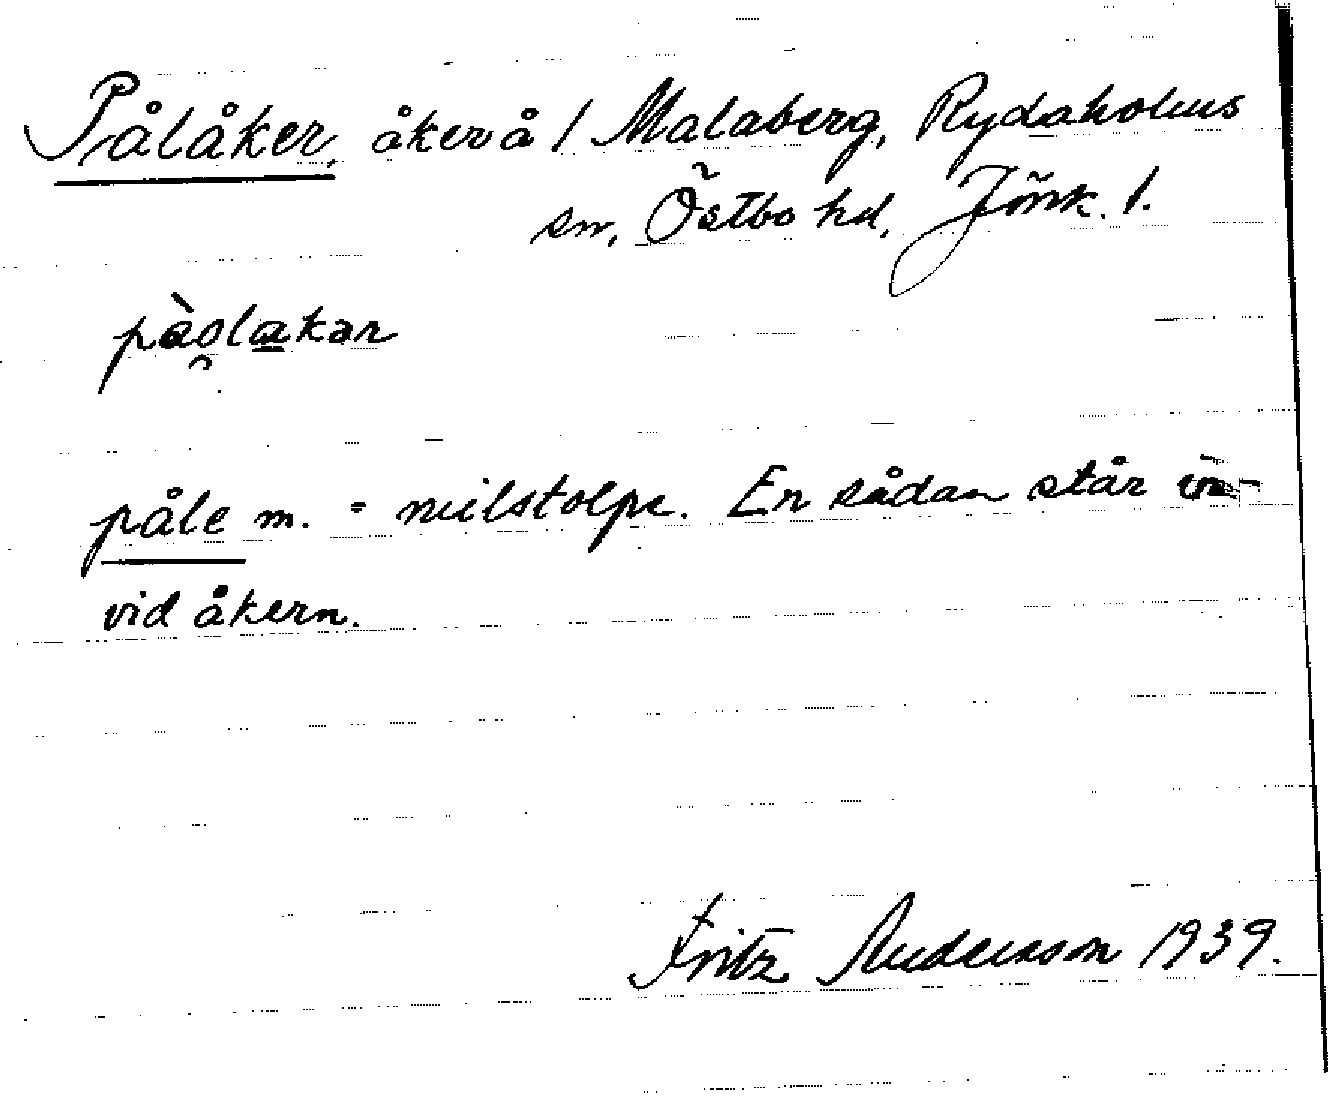 Pålåker, åker å / Malaberg, Rydaholms
sn, Östbo hd, Jönk. l.
pàolakər
påle m. = milstolpe. En sådan står
vid åkern.
Fritz Andersson 1939.